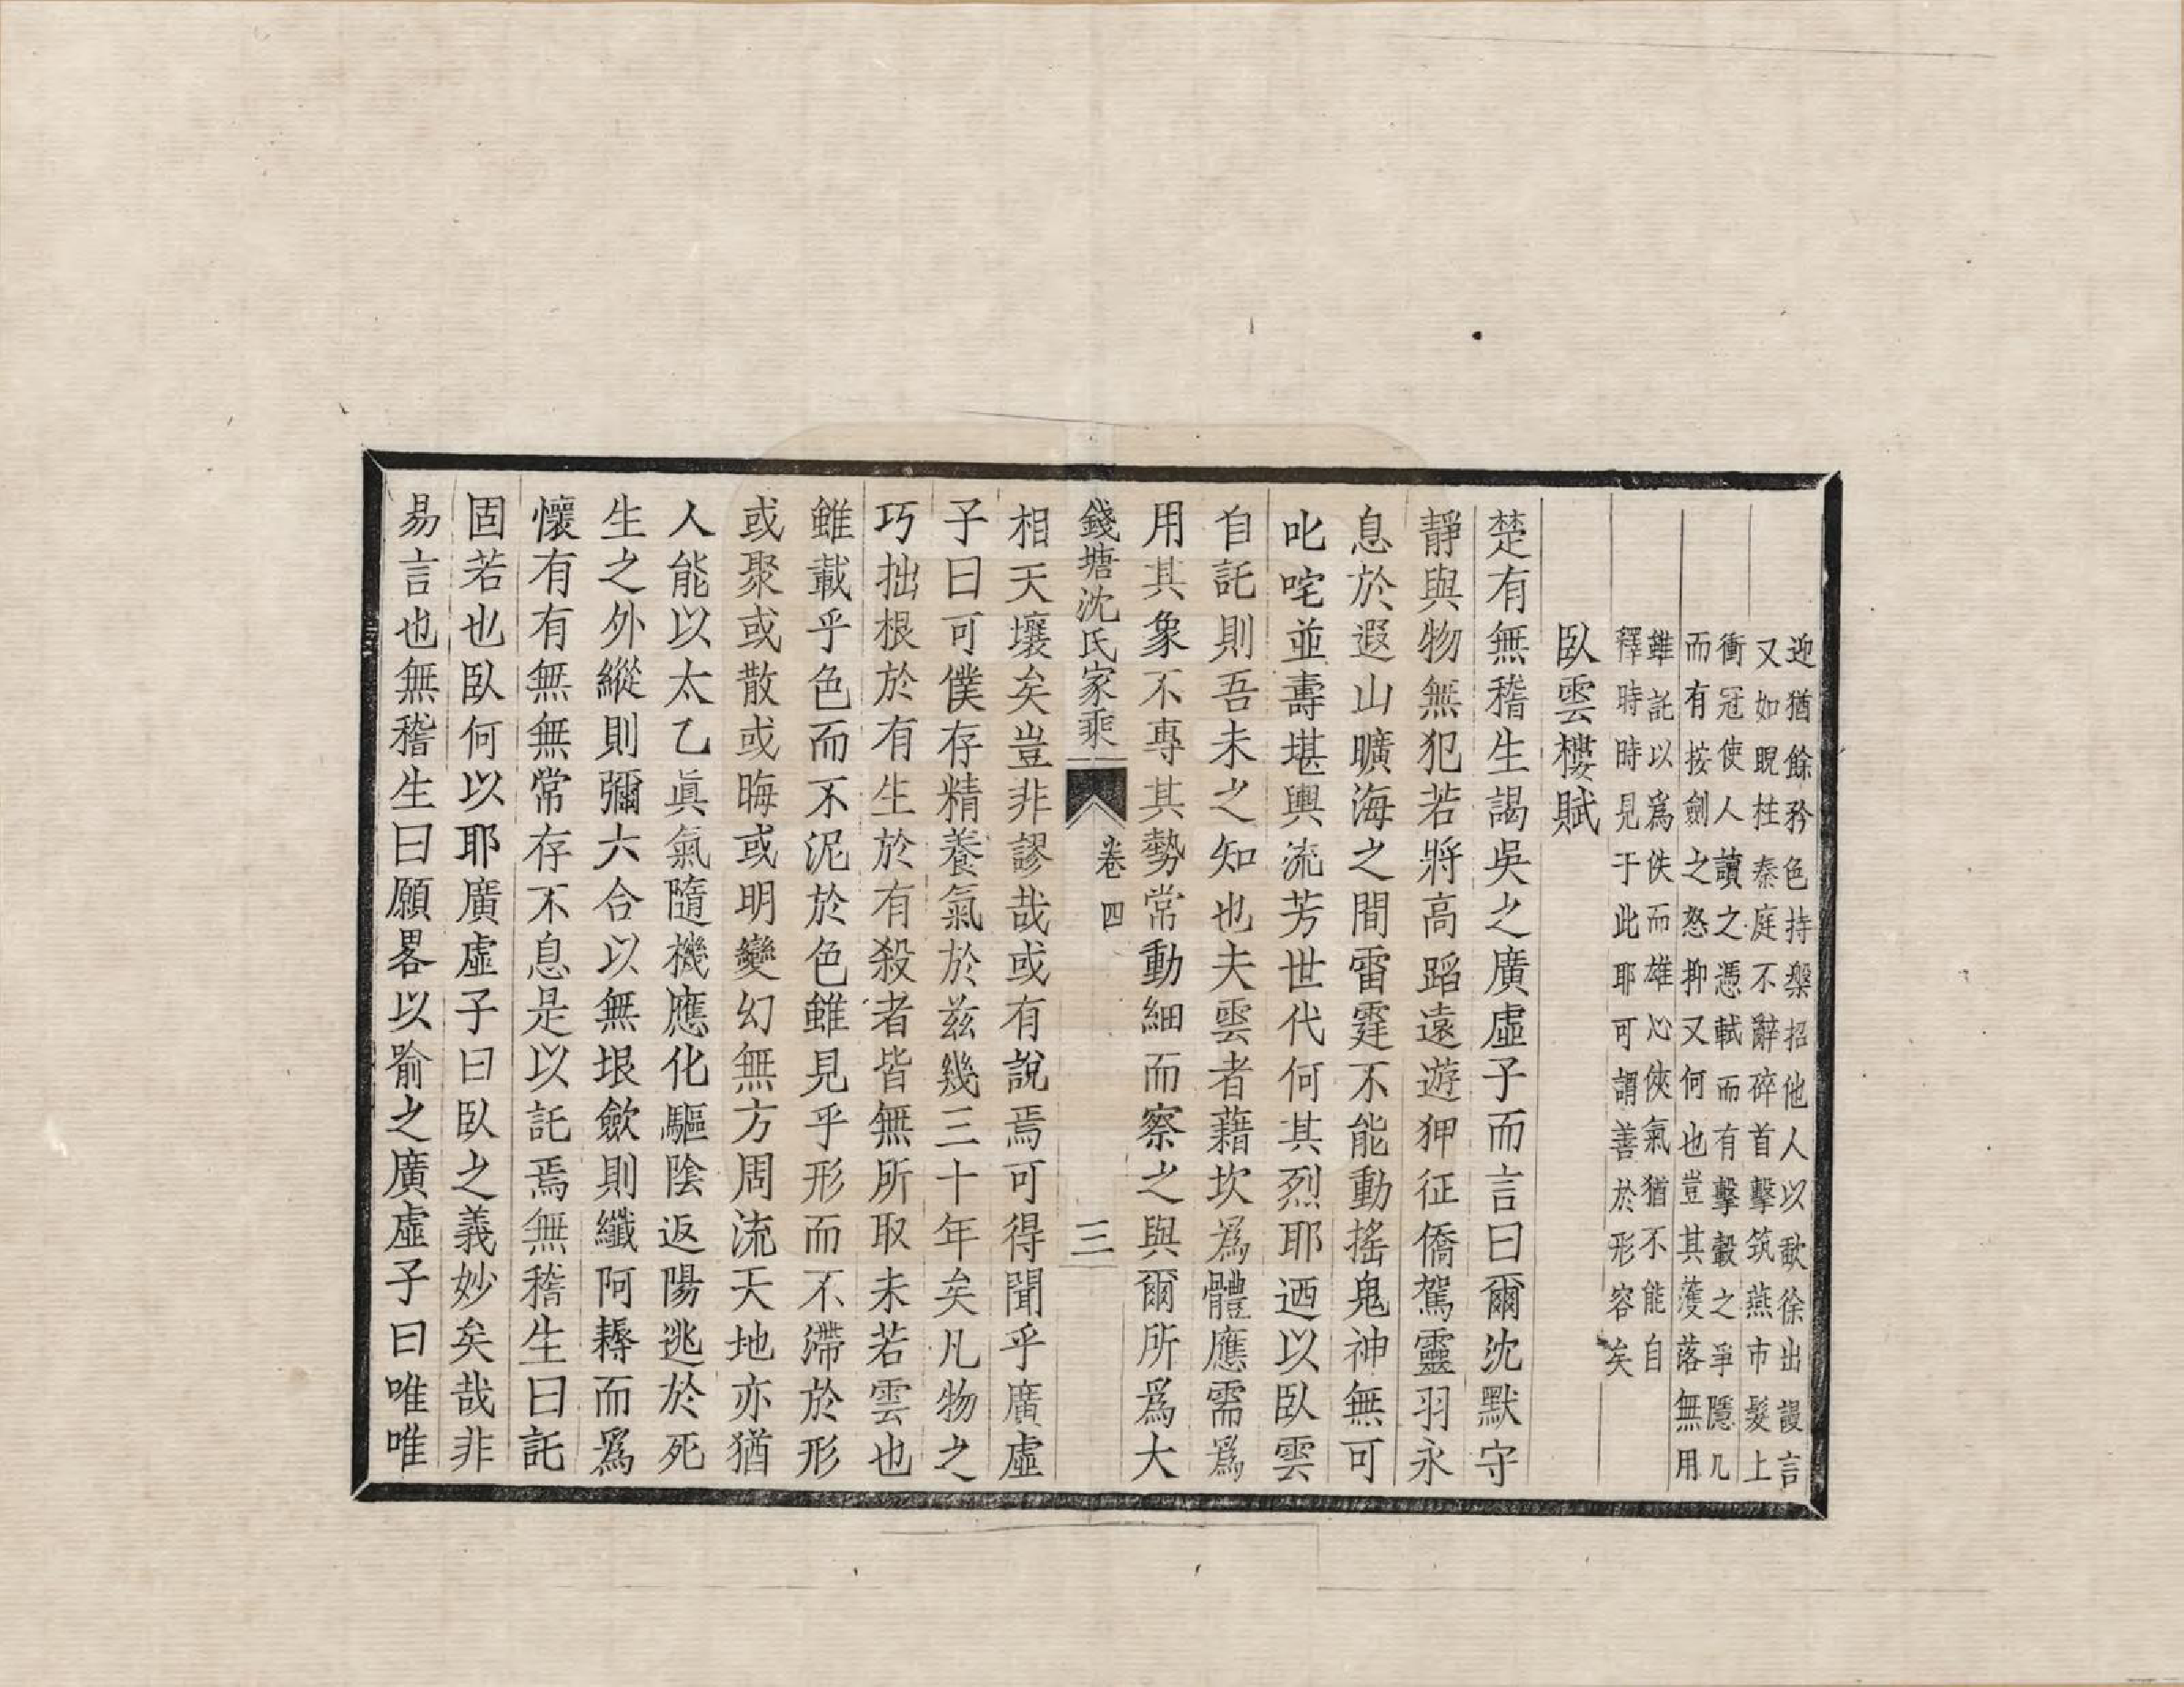 迎猶餘矜色持槊招他人以歃徐出謾言
又如睨柱秦庭不辭碎首擊筑燕市髮上
衝冠使人讀之憑軾而有擊轂之爭隱几
而有按劍之怒抑又何也豈其濩落無用
雖託以爲佚而雄心俠氣猶不能自
釋時時見于此耶可謂善於形容矣
臥雲樓賦
楚有無稽生謁吳之廣虛子而言曰爾沈默守
靜與物無犯若將高蹈遠遊狎征僑駕靈羽永
息於遐山曠海之間雷霆不能動搖鬼神無可
叱咤並壽堪輿流芳世代何其烈耶迺以臥雲
自託則吾未之知也夫雲者藉坎爲體應需爲
用其象不專其勢常動細而察之與爾所爲大
錢塘沈氏家乘
卷四
三
相天壤矣豈非謬哉或有說焉可得聞乎廣虛
子曰可僕存精養氣於兹幾三十年矣凡物之
巧拙根於有生於有殺者皆無所取未若雲也
雖載乎色而不泥於色雖見乎形而不滯於形
或聚或散或晦或明變幻無方周流天地亦猶
人能以太乙眞氣隨機應化驅陰返陽逃於死
生之外縱則彌六合以無垠歛則纖阿耨而爲
懷有有無無常存不息是以託焉無稽生曰託
固若也臥何以耶廣虛子曰臥之義妙矣哉非
易言也無稽生曰願畧以喻之廣虛子曰唯唯